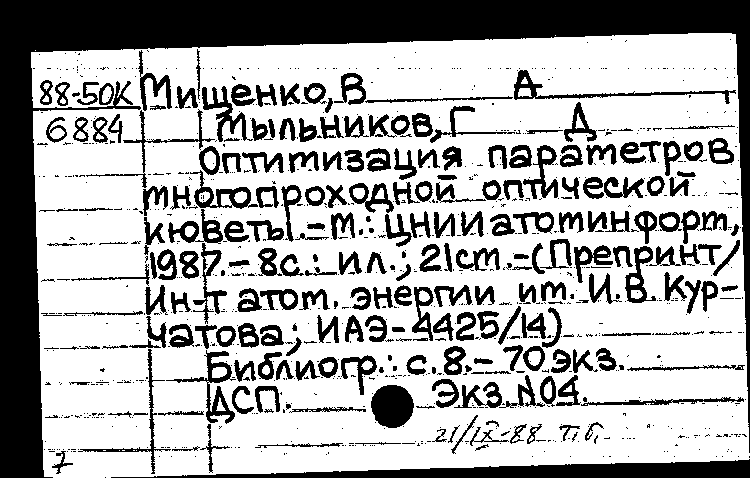 88-50К Мищенко, В А
6884 Мыльников, Г Д
Оптимизация параметров
многопроходной оптической
кюветы.-М.: ЦНИИатоминформ,
1987.-8с.: ил.; 21см.-(Препринт/
Ин-т атом. энергии им. И.В. Кур-
чатова; ИАЭ-4425/14)
Библиогр.: с.8.-70экз.
ДСП. Экз.N04.
21/IX-88 т.б.
7